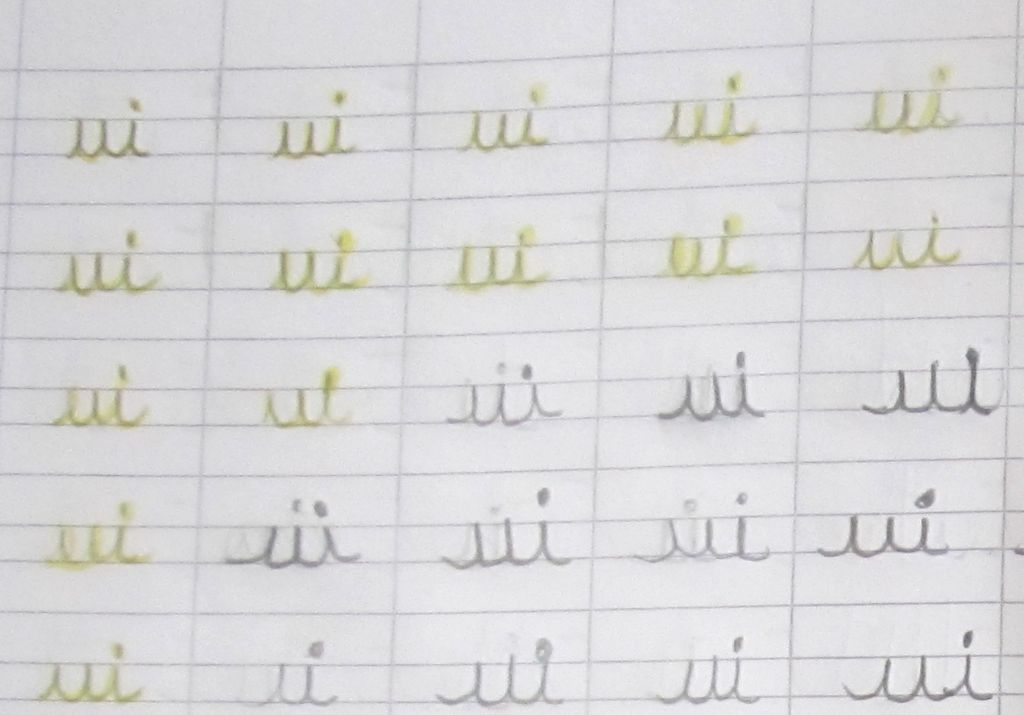 ui ui ui ui ui
ui ui ui ui ui
ui ui ui ui ui
ui ui ui ui ui
ui ui ui ui ui